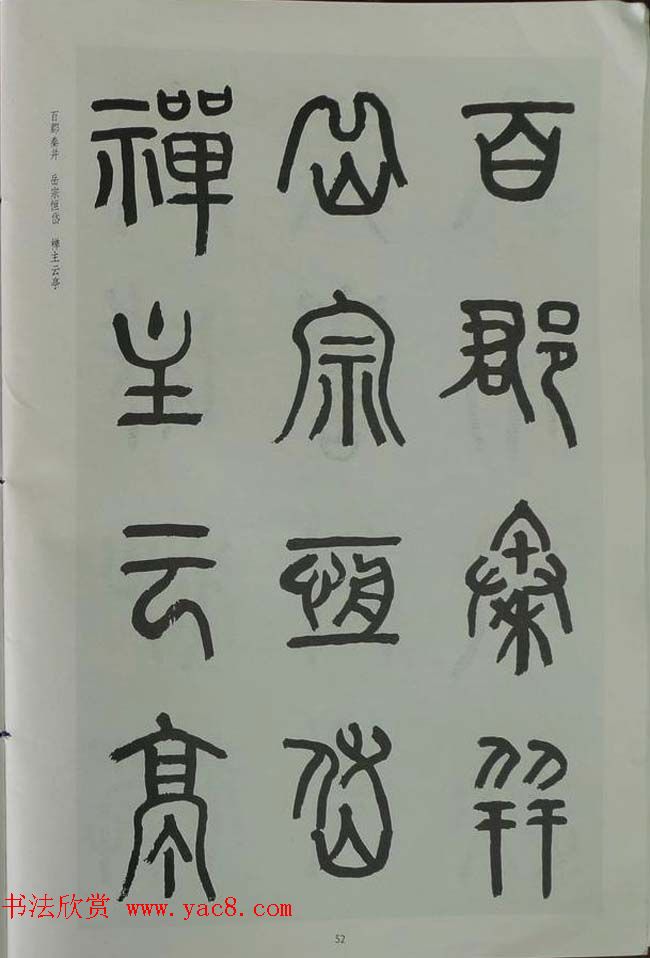 百郡秦并
岳宗恆岱
禪主云亭
百郡秦并　岳宗恒岱　禅主云亭
书法欣赏 www.yac8.com
52